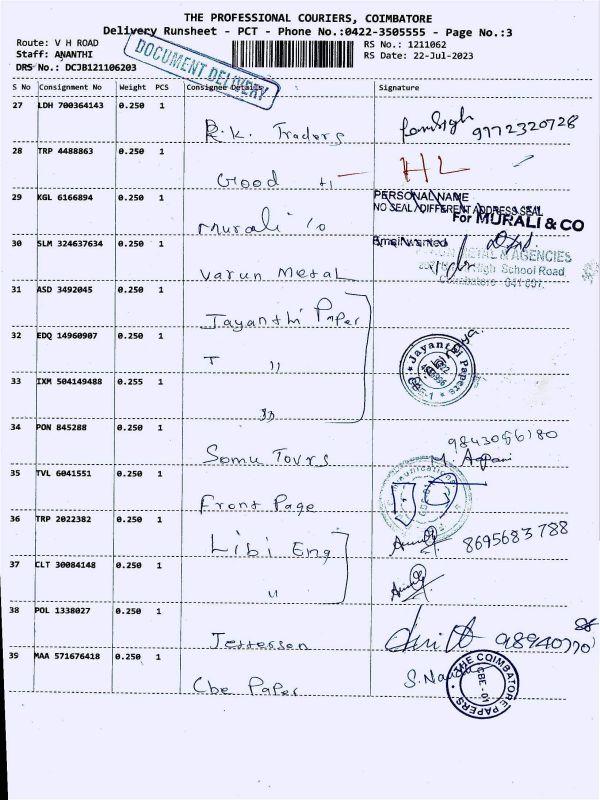 THE PROFESSIONAL COURIERS, COIMBATORE
Delivery Runsheet - PCT - Phone No.:0422-3505555 - Page No.:3
Route: V H ROAD
RS No.: 1211062
Staff: ANANTHI
RS Date: 22-Jul-2023
DRS No.: DCJB121106203
DOCUMENT DELIVERY
S No Consignment No Weight PCS Consignee Details Signature
27 LDH 700364143 0.250 1
R.k. Traders
9772320728
28 TRP 4488863 0.250 1
HL
Good H
29 KGL 6166894 0.250 1
PERSONAL NAME
NO SEAL / DIFFERENT ADDRESS SEAL
For MURALI & CO
Murali
30 SLM 324637634 0.250 1
METAL & AGENCIES
High School Road
Varun Metal
31 ASD 3492045 0.250 1
Jayanthi Paper
32 EDQ 14960907 0.250 1
Jayanthi Papers
CBE-1
T "
33 IXM 504149488 0.255 1
"
34 PON 845288 0.250 1
9843056180
Somu Tovrs
35 TVL 6041551 0.250 1
Front Page
36 TRP 2022382 0.250 1
Libi Eng
8695683788
37 CLT 30084148 0.250 1
"
38 POL 1338027 0.250 1
Jefferson
39 MAA 571676418 0.250 1
THE COIMBATORE PAPERS
CBE - 01
Cbe Paper